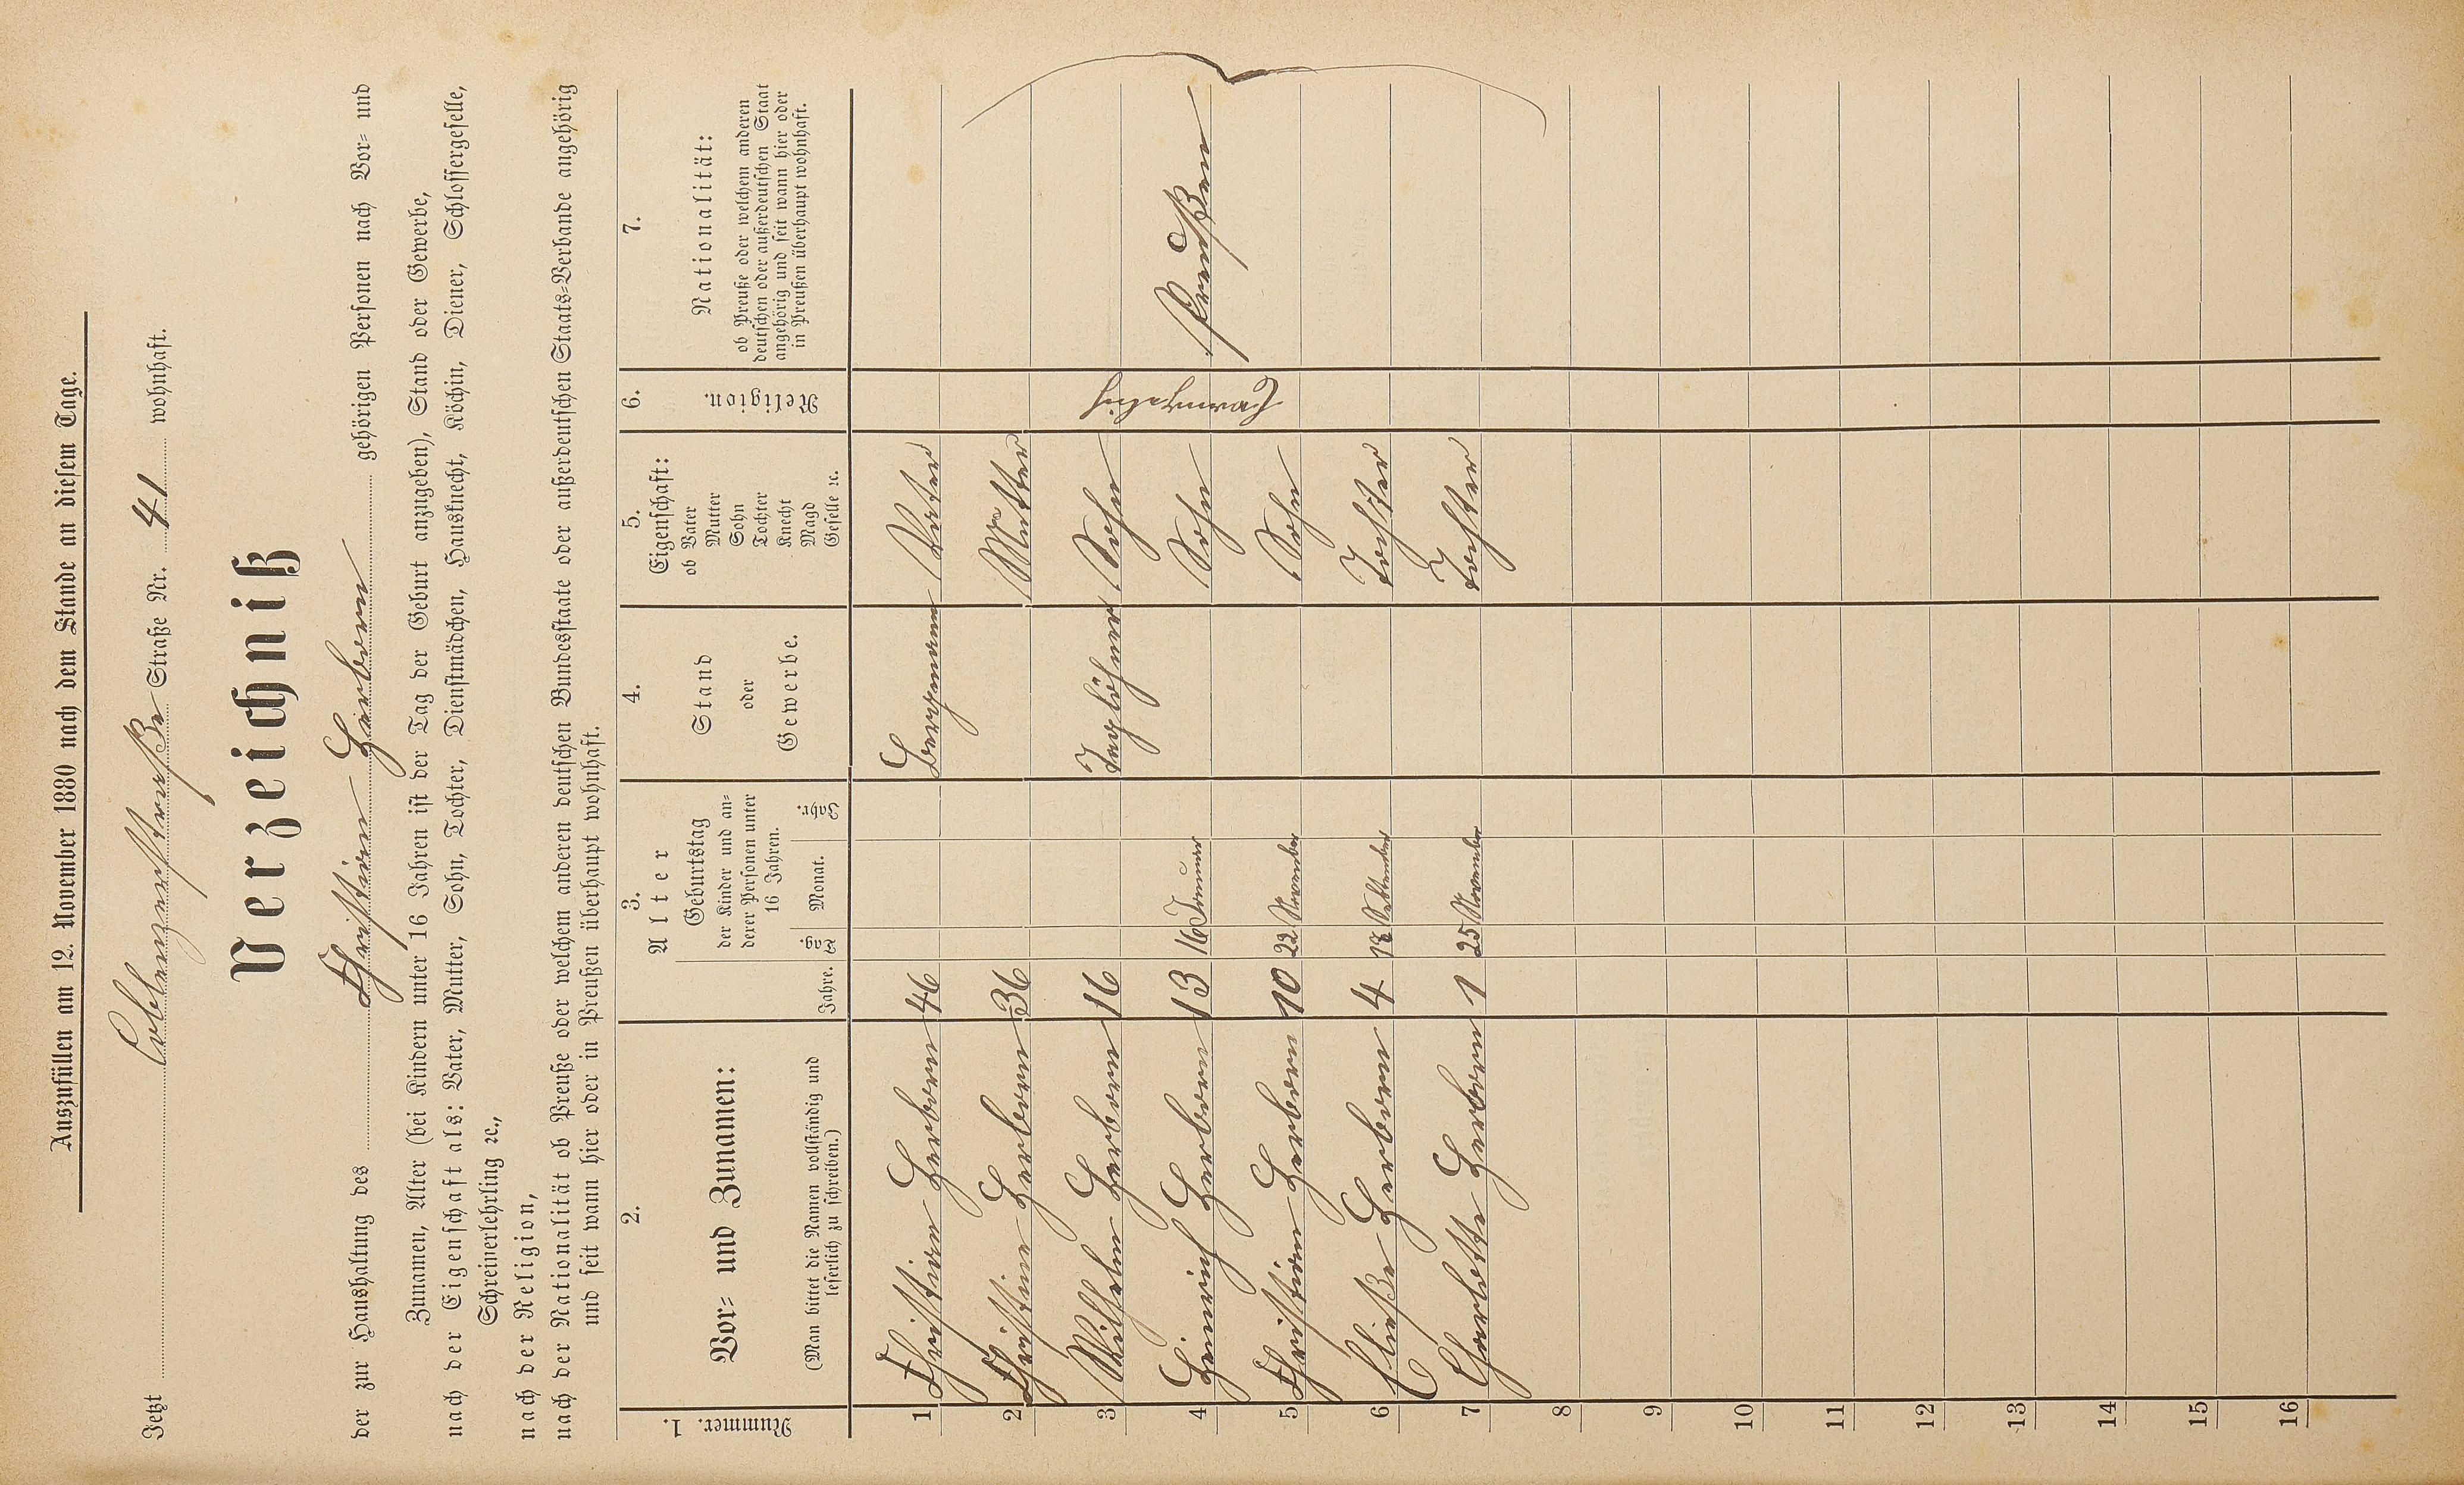 Auszufüllen am 12. November 1880 nach dem Stande an diesem Tage.
Jetzt Coblenzerstraße Straße Nr. 41 wohnhaft.
Verzeichniß
der zur Haushaltung des Christian Herborn gehörigen Personen nach Vor- und
Zunamen, Alter (bei Kindern unter 16 Jahren ist der Tag der Geburt anzugeben), Stand oder Gewerbe,
nach der Eigenschaft als: Vater, Mutter, Sohn, Tochter, Dienstmädchen, Hausknecht, Köchin, Diener, Schlossergeselle,
Schreinerlehrling ꝛc.,
nach der Religion,
nach der Nationalität ob Preuße oder welchem anderen deutschen Bundesstaate oder außerdeutschen Staats-Verbande angehörig
und seit wann hier oder in Preußen überhaupt wohnhaft.
1. Nummer.
2. Vor- und Zunamen:
(Man bittet die Namen vollständig und
leserlich zu schreiben.)
3. Alter
Jahre.
Geburtstag
der Kinder und an-
derer Personen unter
16 Jahren.
Tag. Monat. Jahr.
4. Stand
oder
Gewerbe.
5. Eigenschaft:
ob Vater
Mutter
Sohn
Tochter
Knecht
Magd
Geselle ꝛc.
6. Religion.
7. Nationalität:
ob Preuße oder welchem anderen
deutschen oder außerdeutschen Staat
angehörig und seit wann hier oder
in Preußen überhaupt wohnhaft.
1 Christian Herborn 46 Bergmann Vater
2 Christine Herborn 36 Mutter
3 Wilhelm Herborn 16 Taglöhner Sohn
4 Heinrich Herborn 13 16 Januar Sohn
5 Christian Herborn 10 22 November Sohn
6 Eliese Herborn 4 18 September Tochter
7 Charlotte Herborn 1 25 November Tochter
Evangelisch
Preußen
8
9
10
11
12
13
14
15
16